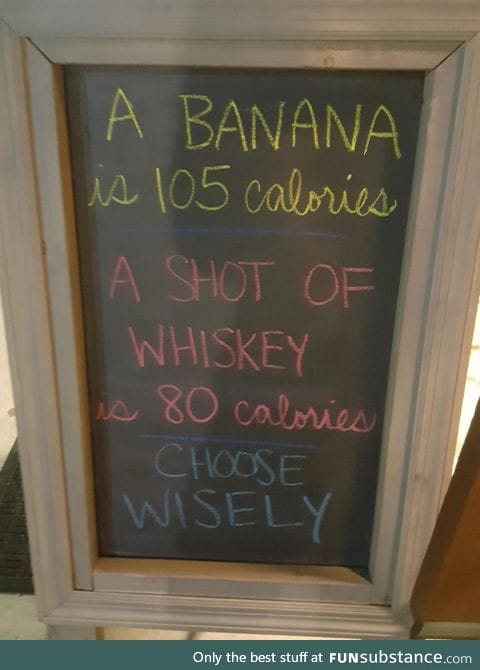 A BANANA
is 105 calories
A SHOT OF
WHISKEY
is 80 calories
CHOOSE
WISELY
Only the best stuff at FUNsubstance.com